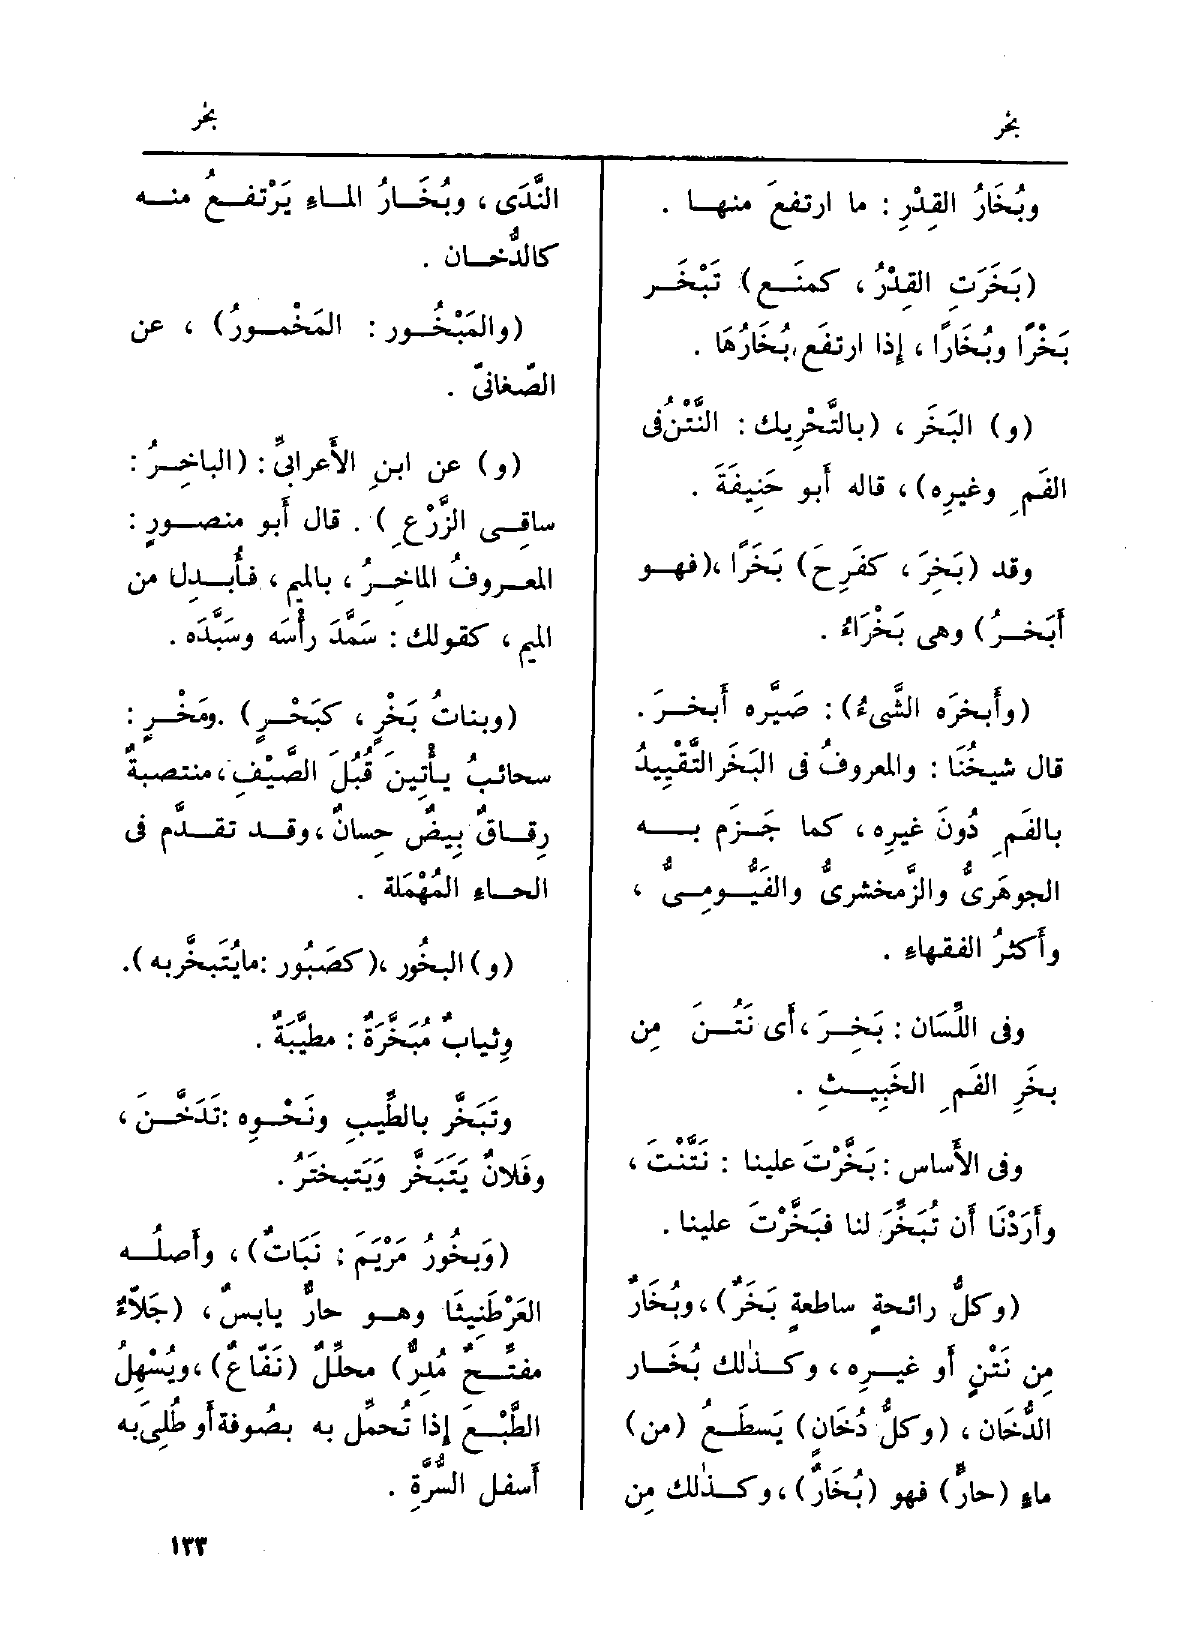 بخر
بخر
وبُخَارُ القِدْرِ : ما ارتفعَ منهـا .
(بَخَرَتِ القِدْرُ ، كمنَـع) تَبْخَـر
بَخْرًا وبُخَارًا ، إذا ارتفَع بُخَارُهَا .
(و) البَخَر ، (بالتَّحْرِيك : النَّتْنُ فى
الفَمِ وغيرِه) ، قاله أَبو حَنِيفَةَ .
وقد (بَخِرَ ، كفَرِحَ) بَخَرًا ،(فهـو
أَبَخـرُ) وهى بَخْرَاءُ .
(وأَبخرَه الشَّىءُ) : صَيَّره أَبخـرَ .
قال شيخُنَا : والمعروفُ فى البَخَر التَّقْيِيدُ
بالفَمِ دُونَ غيرِه ، كما جَـزَم بــه
الجوهَرىُّ والزَّمخشرىُّ والفَيُّـومـىُّ ،
وأَكثرُ الفقهاءِ .
وفى اللِّسَان : بَخِـرَ ، أَى نَتُـنَ مِن
بخَرِ الفَمِ الخَبِيـثِ .
وفى الأَساس : بَخَّرْتَ علينا : نَتَّنْتَ ،
وأَرَدْنَا أَن تُبَخِّرَ لنا فبَخَّرْتَ علينا .
(وكلُّ رائحةٍ ساطعةٍ بَخَرٌ) ، وبُخَارٌ
مِن نَتْنٍ أَو غيـرِه ، وكـذٰلك بُخَـار
الدُّخَان ، (وكلُّ دُخَان) يَسطَـعُ (من)
ماءٍ (حارٍّ) فهو (بُخَارٌ) ، وكـذٰلك مِن
النَّدَى ، وبُخَـارُ المـاءِ يَرْتفـعُ منـه
كالدُّخـان .
(والمَبْخُـور : المَخْمـورُ) ، عن
الصّغانىّ .
(و) عن ابنِ الأَعرابىِّ : (الباخِـرُ :
ساقِـى الزَّرْعِ ) . قال أَبو منصـورٍ :
المعـروفُ الماخِـرُ ، بالميم ، فـأُبـدِل من
الميم ، كقولك : سَمَّدَ رأْسَه وسَبَّدَه .
(وبناتُ بَخْرٍ ، كبَحْـرٍ) .ومَخْـرٍ :
سحائبُ يـأْتينَ قُبُلَ الصَّيْفِ ، منتصبةٌ
رِقـاقٌ بِيضٌ حِسانٌ ، وقـد تقـدَّم فى
الحـاءِ المُهْمَلة .
(و) البخُور ،(كصَبُور :مايُتَبخَّربه).
وثِيابٌ مُبَخَّرَةٌ : مطيَّبَةٌ .
وتَبَخَّر بالطِّيبِ ونَحْـوِه :تَدَخَّـنَ ،
وفَلانٌ يَتَبَخَّر وَيَتبختَرُ .
(وَبخُورُ مَرْيَمَ : نَبَاتٌ) ، وأَصلُـه
العَرْطَنِيثَا وهـو حارٌّ يابسٌ ، (جَلاَّءٌ
مفتِّـحٌ مُدِرٌّ) محلِّلٌ (نَفَّاعٌ) ، ويُسْهِلُ
الطَّبْـعَ إِذا تُحمِّل به بصُوفة أَو طُلِىَ به
أَسفل السُّرَّةِ .
١٣٣